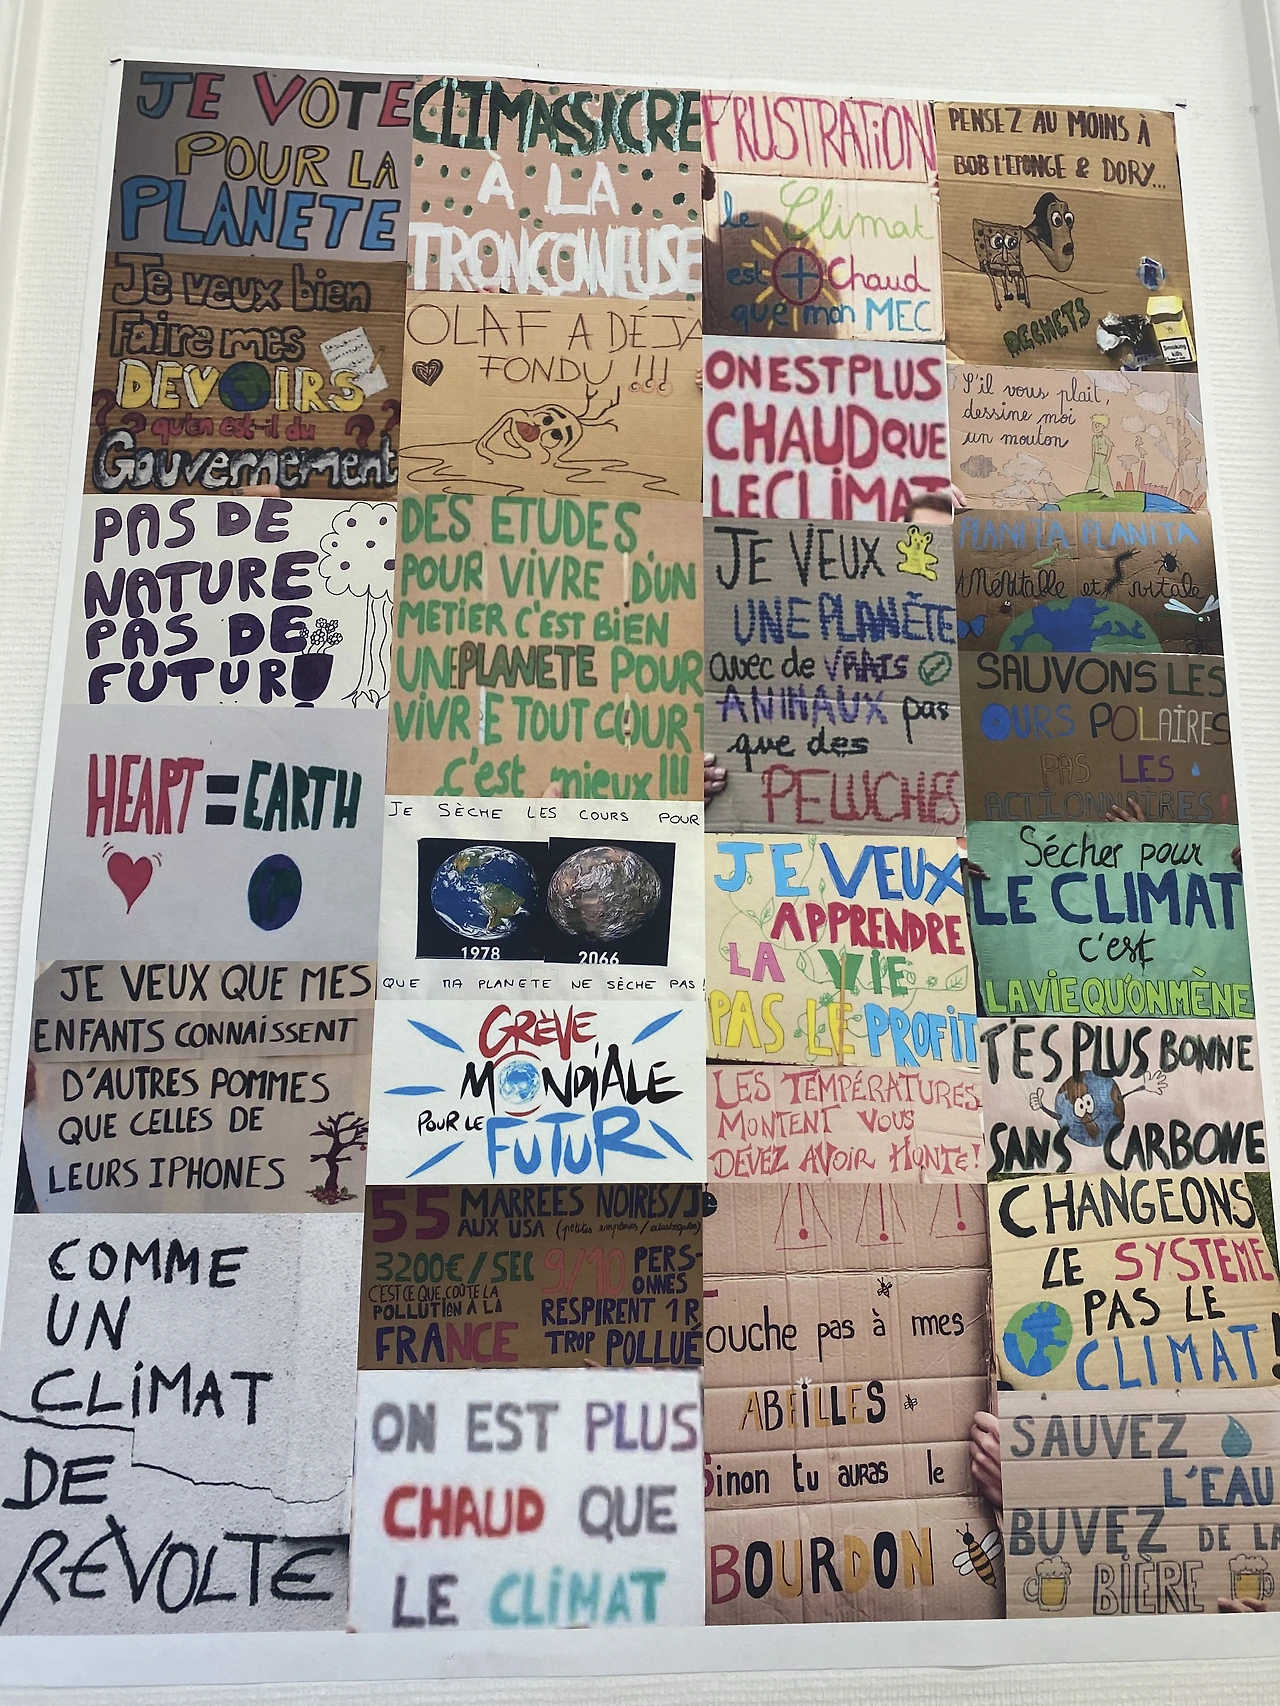 JE VOTE
POUR LA
PLANETE
Je veux bien
Faire mes
DEVOIRS
qu'en est-il du
Gouvernement
PAS DE
NATURE
PAS DE
FUTUR!
HEART = EARTH
JE VEUX QUE MES
ENFANTS CONNAISSENT
D'AUTRES POMMES
QUE CELLES DE
LEURS IPHONES
COMME
UN
CLIMAT
DE
RÉVOLTE
CLIMASSACRE
À LA
TRONÇONNEUSE
OLAF A DÉJÀ
FONDU !!!
DES ETUDES
POUR VIVRE D'UN
METIER C'EST BIEN
UNE PLANETE POUR
VIVRE TOUT COURT
c'est mieux!!!
JE SÈCHE LES COURS POUR
1978 2066
QUE MA PLANETE NE SÈCHE PAS!
GRÈVE
MONDIALE
POUR LE
FUTUR
55 MARRÉES NOIRES/Je
AUX USA
3200€/SEC
C'EST CE QUE COÛTE LA
POLLUTION A LA
FRANCE
9/10 PERS-
ONNES
RESPIRENT 1R
TROP POLLUÉ
ON EST PLUS
CHAUD QUE
LE CLIMAT
FRUSTRATION
le Climat
est + Chaud
que mon MEC
ON EST PLUS
CHAUD QUE
LE CLIMAT
JE VEUX
UNE PLANÈTE
avec de VRAIS
ANIMAUX pas
que des
PELUCHES
JE VEUX
APPRENDRE
LA VIE
PAS LE PROFIT
LES TEMPÉRATURES
MONTENT VOUS
DEVEZ AVOIR HONTE!
Touche pas à mes
ABEILLES
Sinon tu auras le
BOURDON
PENSEZ AU MOINS À
BOB L'EPONGE & DORY...
DECHETS
Smoking
kills
S'il vous plait,
dessine moi
un mouton
PLANITA PLANITA
Méritable et
SAUVONS LES
OURS POLAIRES
PAS LES
ACTIONNAIRES!
Sécher pour
LE CLIMAT
c'est
LA VIE QU'ON MÈNE
T'ES PLUS BONNE
SANS CARBONE
CHANGEONS
LE SYSTEME
PAS LE
CLIMAT!
SAUVEZ
L'EAU
BUVEZ DE LA
BIÈRE